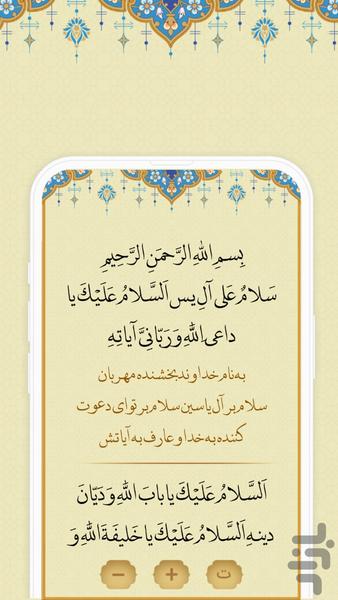 بِسمِ اللهِ الرَّحمَنِ الرَّحِیمِ
سَلامٌ عَلی آلِ یس اَلسَّلامُ عَلَیْكَ یا
داعِیَ اللهِ وَ رَبّانِیَّ آیاتِهِ
به نام خداوند بخشنده مهربان
سلام بر آل یاسین سلام بر تو ای دعوت
کننده به خدا و عارف به آیاتش
اَلسَّلامُ عَلَیْكَ یا بابَ اللهِ وَ دَیّانَ
دینِهِ اَلسَّلامُ عَلَیْكَ یا خَلیفَةَ اللهِ وَ
ت + −
بازار